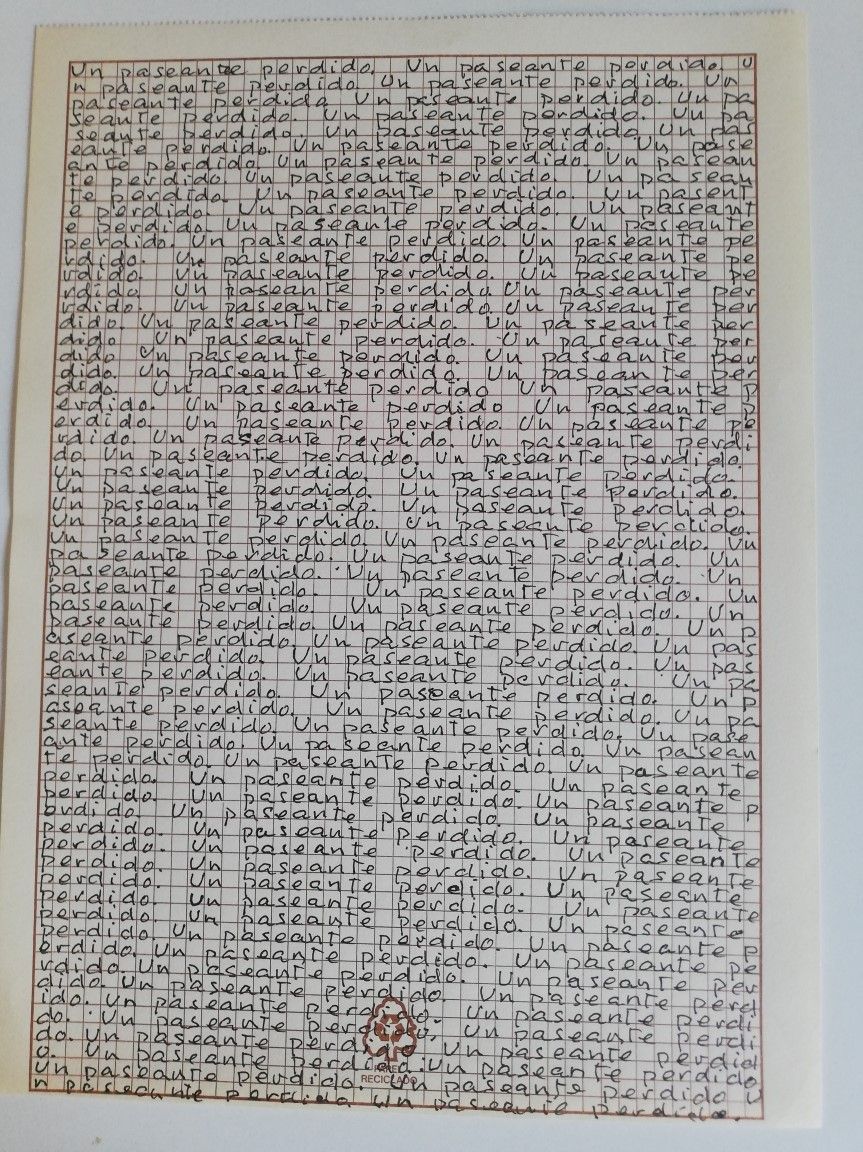 Un paseante perdido. Un paseante perdido. U
n paseante perdido. Un paseante perdido. Un
paseante perdido Un paseante perdido. Un pa
seante perdido. Un paseante perdido. Un pa
seante perdido. Un paseante perdido Un pas
eante perdido. Un paseante perdido. Un pase
ante perdido Un paseante perdido. Un pasean
te perdido Un paseante perdido. Un pasean
te perdido. Un paseante perdido. Un pasent
e perdido. Un paseante perdido. Un paseant
e perdido. Un paseante perdido. Un paseante
perdido. Un paseante perdido. Un paseante pe
rdido. Un paseante perdido. Un paseante pe
rdido. Un paseante perdido. Un paseante pe
rdido Un paseante perdido. Un paseante per
rdido. Un paseante perdido. Un paseante per
dido. Un paseante perdido. Un paseante per
dido Un paseante perdido. Un paseante per
dido Un paseante perdido. Un paseante per
dido. Un paseante perdido. Un paseante per
dido. Un paseante perdido Un paseante p
erdido. Un paseante perdido Un paseante p
erdido. Un paseante perdido. Un paseante pe
rdido. Un paseante perdido. Un paseante perdi
do. Un paseante perdido. Un paseante perdido.
Un paseante perdido. Un paseante perdido.
Un paseante perdido. Un paseante perdido.
Un paseante perdido. Un paseante perdido.
Un paseante perdido. Un paseante perdido.
Un paseante perdido. Un paseante perdido. Un
paseante perdido. Un paseante perdido. Un
paseante perdido. Un paseante perdido. Un
paseante perdido. Un paseante perdido. Un
paseante perdido. Un paseante perdido. Un
paseante perdido. Un paseante perdido. Un p
aseante perdido. Un paseante perdido. Un pas
eante perdido. Un paseante perdido. Un pas
eante perdido. Un paseante perdido. Un pa
seante perdido. Un paseante perdido. Un p
aseante perdido. Un paseante perdido. Un pa
seante perdido. Un paseante perdido. Un pase
ante perdido. Un paseante perdido. Un pasean
te perdido. Un paseante perdido. Un paseante
perdido. Un paseante perdido. Un paseante
perdido. Un paseante perdido. Un paseante p
erdido. Un paseante perdido. Un paseante
perdido. Un paseante perdido. Un paseante
perdido. Un paseante perdido. Un paseante
perdido. Un paseante perdido. Un paseante
perdido. Un paseante perdido. Un paseante
perdido. Un paseante perdido. Un paseante
perdido. Un paseante perdido. Un paseante
perdido. Un paseante perdido. Un paseante p
erdido. Un paseante perdido. Un paseante pe
rdido. Un paseante perdido. Un paseante per
dido. Un paseante perdido. Un paseante perd
ido. Un paseante perdido. Un paseante perdi
do. Un paseante perdido. Un paseante perdi
do. Un paseante perdido. Un paseante perdid
o. Un paseante perdido. Un paseante perdido.
Un paseante perdido. Un paseante perdido U
n paseante perdido Un paseante perdido.
RECICLADO